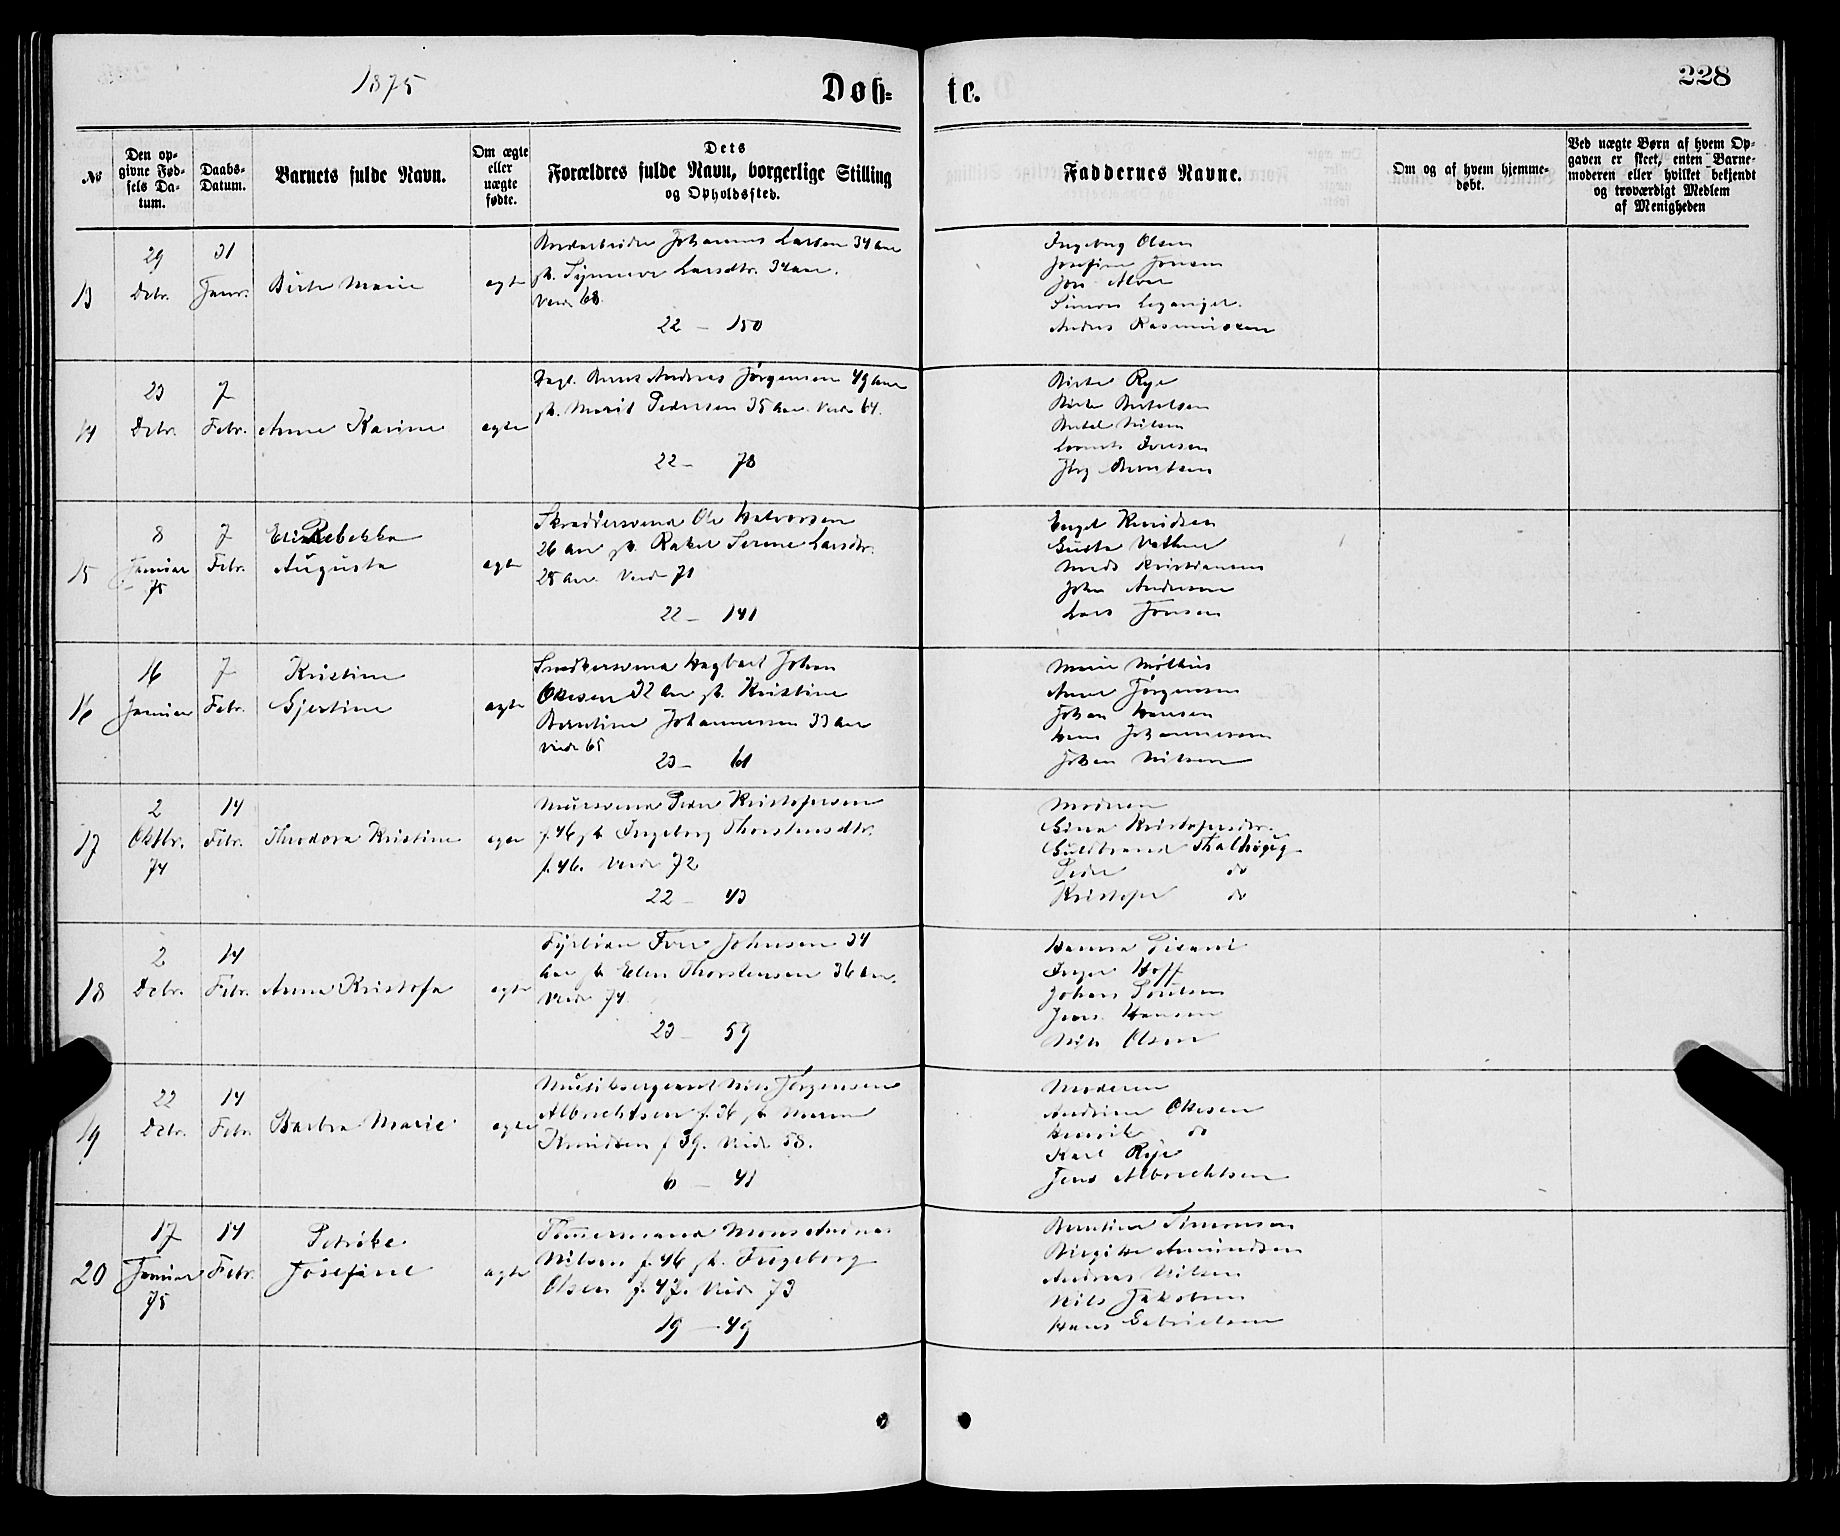 1875
Døb-
te.
228
No
Den op-
givne Fød-
sels Da-
tum.
Daabs-
Datum.
Barnets fulde Navn.
Om ægte
eller
uægte
fødte.
Dets
Forældres fulde Navn, borgerlige Stilling
og Opholdssted.
Faddernes Navne.
Om og af hvem hjemme-
døbt.
Ved uægte Børn af hvem Op-
gaven er skeet, enten Barne-
moderen eller hvilket bekjendt
og troværdigt Medlem
af Menigheden
13
29
Dcbr.
31
Janr.
Birte Marie
ægte
Johannes Larsen 34 Aar
Larsdtr. 34 aar.
Viede 68
22 - 150
Ingeborg Olsen
Josefine Jonsen
Jon Alver
Simon Leganger.
Andres Rasmussen
14
23
Dcbr.
7
Febr.
Anne Karine
ægte
Andreas Jørgensen 49 aar
Marit Pedersen 35 aar. Viede 64.
22 - 78
Birte Rye
Birte Bertelsen
Bertel Nilsen
Iversen
15
8
Januar
75
7
Febr.
Rebekka
Augusta
ægte
Skræddersvend Ole Halvorsen
26 aar Rakel Serine Larsdtr.
28 aar. Viede 71
22 - 141
Engel Knudsen
Mads Kristiansen
John Andersen
Lars Jonsen
16
16
Januar
7
Febr.
Kristine
Gjertine
ægte
Snedkersvend Hagbart Johan
Okesen 32 aar Kristine
Berntine Johannessen 33 aar
Viede 65
23 - 61
Marie Møthus
Anne Jørgensen
Johan Hansen
Hans Johannesen
Johan Nilsen
17
2
Oktbr.
74
14
Febr.
Theodora Kristine
ægte
Mursvend Peder Kristofersen
f. 46 Ingeborg Thorstensdtr.
f. 46. Viede 72
22 - 43
Moderen
Sina Kristofersdtr.
Guldbrand Thalhøgeg
Peder do
Kristofer do
18
2
Dcbr.
14
Febr.
Anna Kristofa
ægte
Fyrbøder Iver Johnsen 34
aar Elen Thorstensen 36 aar.
Viede 74
23 - 59
Hanna Pisani
Inger Hoff
Johan Poulsen
Jens Hansen
Nils Olsen
19
22
Dcbr.
14
Febr.
Barbra Marie
ægte
Musiksergeant Nils Jørgensen
Albrechtsen f. 36 Maren
Knudsen f 39. Viede 58.
6 - 41
Moderen
Andrine Okesen
Henrik do
Karl Rye
Jens Albrechtsen
20
17
Januar
75
14
Febr.
Petrike
Josefine
ægte
Tømmermand Mons Andreas
Nilsen f. 46 Ingeborg
Olsen f. 47. Viede 73
19 - 49
Berntine Simonsen
Birgitte Amundsen
Andreas Nilsen
Nils Jakobsen
Hans Gabrielsen